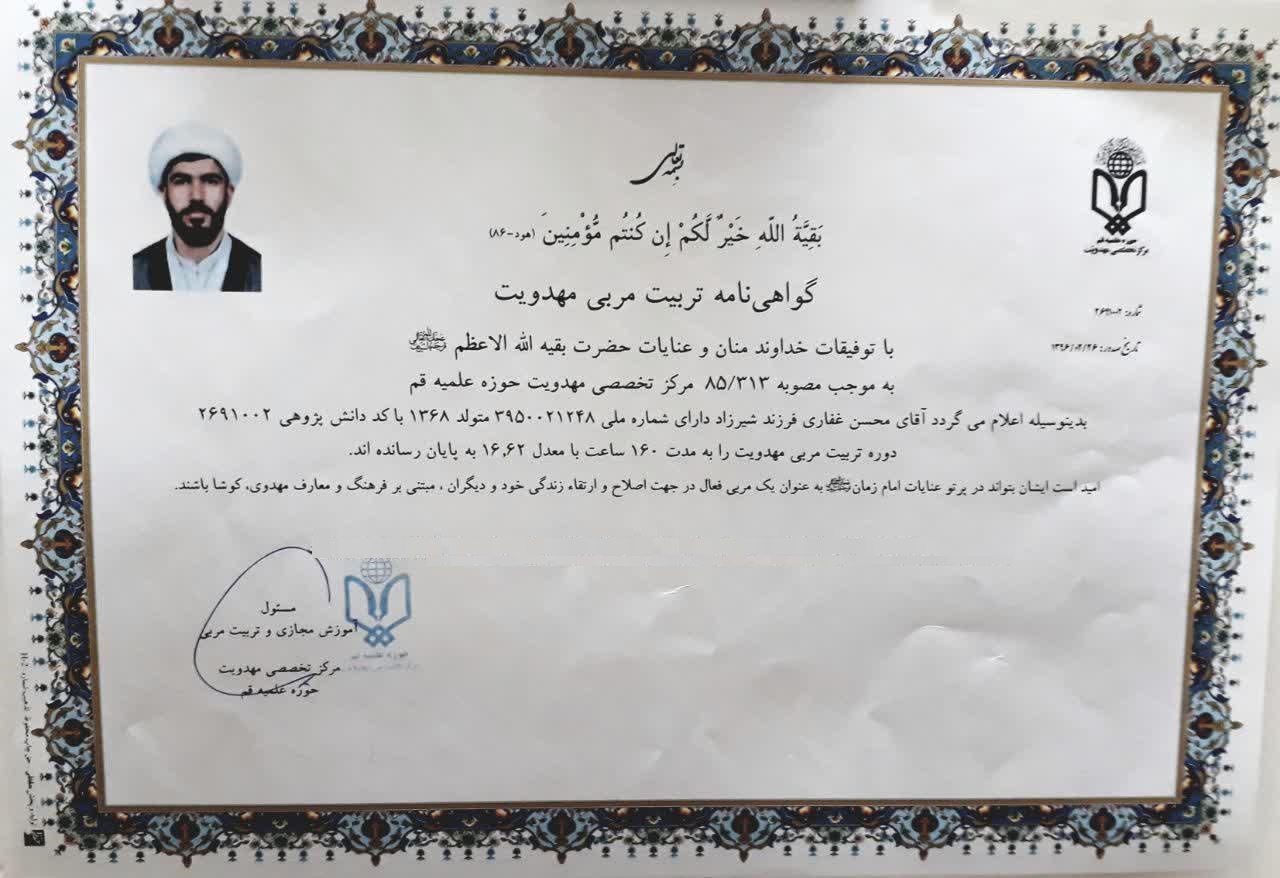 بسمه تعالی
بَقِيَّةُ اللّهِ خَيْرٌ لَّكُمْ إِن كُنتُم مُّؤْمِنِينَ (هود-۸۶)
گواهی‌نامه تربیت مربی مهدویت
حوزه علمیه قم
مرکز تخصصی مهدویت
شماره: ۲۶۹۱۰۰۲
تاریخ صدور:
با توفیقات خداوند منان و عنایات حضرت بقیه الله الاعظم
به موجب مصوبه ۸۵/۳۱۳ مرکز تخصصی مهدویت حوزه علمیه قم
بدینوسیله اعلام می گردد آقای محسن غفاری فرزند شیرزاد دارای شماره ملی ۳۹۵۰۰۲۱۲۴۸ متولد ۱۳۶۸ با کد دانش پژوهی ۲۶۹۱۰۰۲
دوره تربیت مربی مهدویت را به مدت ۱۶۰ ساعت با معدل ۱۶,۶۲ به پایان رسانده اند.
امید است ایشان بتواند در پرتو عنایات امام زمان به عنوان یک مربی فعال در جهت اصلاح و ارتقاء زندگی خود و دیگران ، مبتنی بر فرهنگ و معارف مهدوی، کوشا باشند.
مسئول
آموزش مجازی و تربیت مربی
مرکز تخصصی مهدویت
حوزه علمیه قم
حوزه علمیه قم